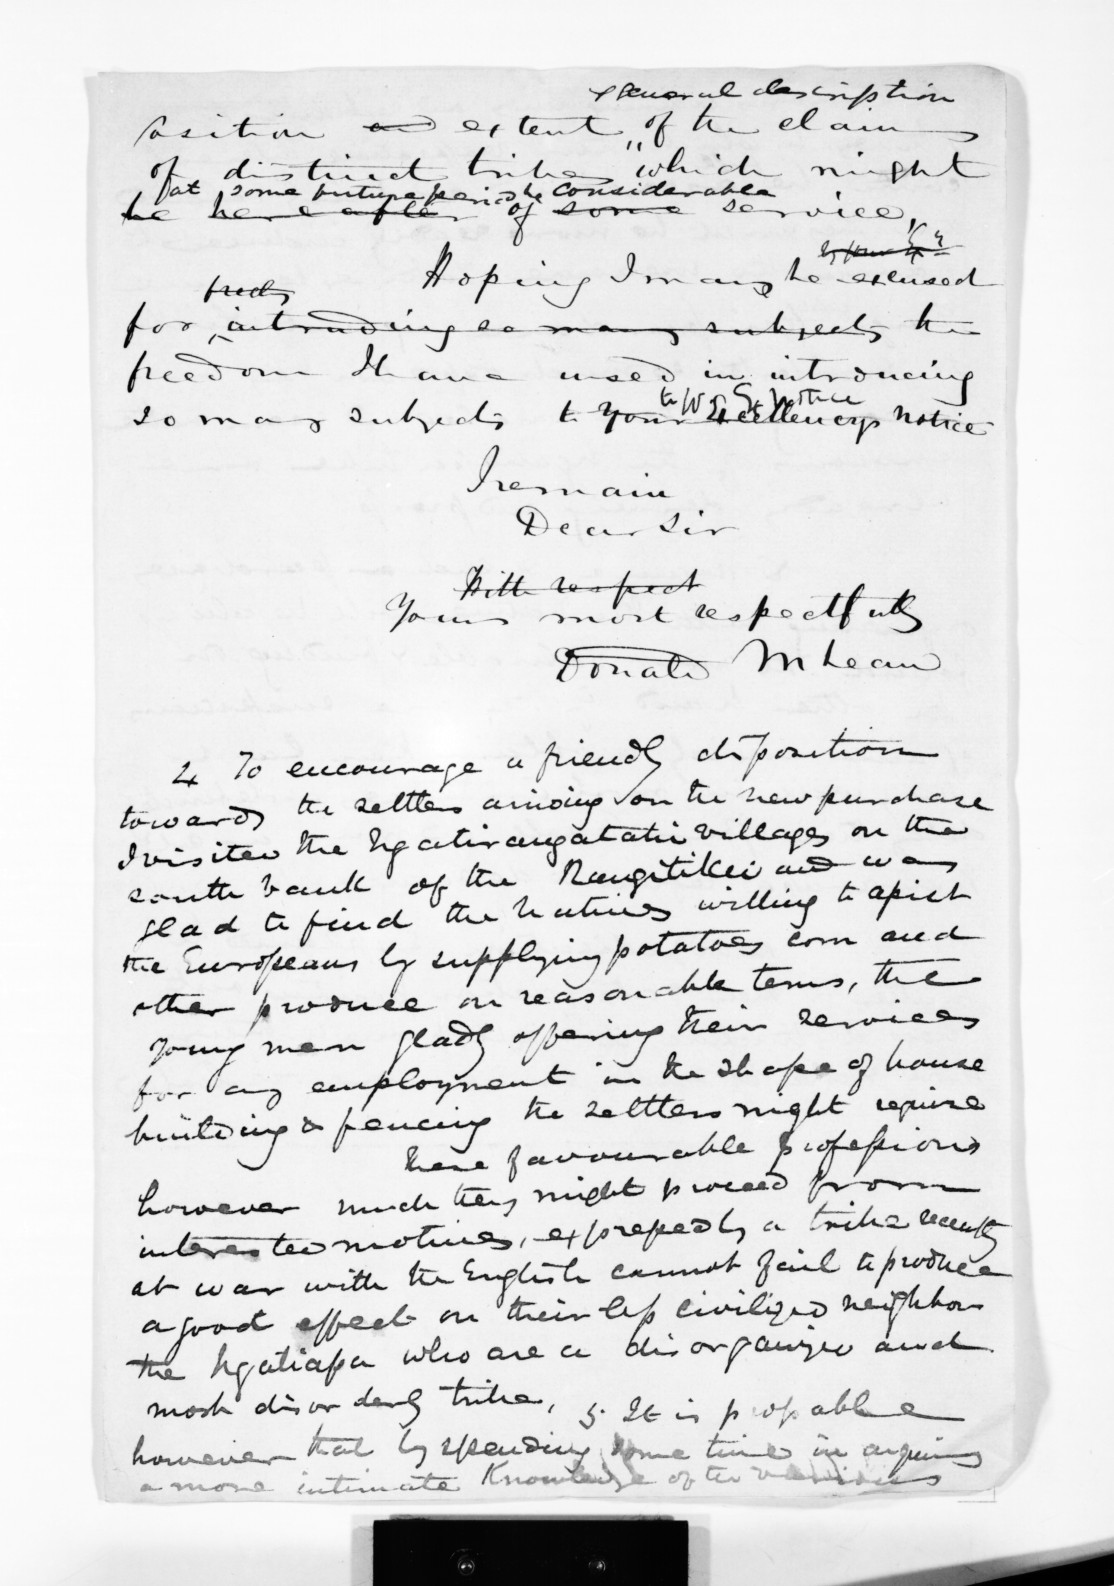 & general description
position and extent of the claims
of distinct tribes which might
at some future period be considerable
be hereafter of some service,
Hoping I may be excused
freely
for intruding so many subjects the
freedom I have used in introducing
to Notice
so many subjects to Your Excellencys Notice
I remain
Dear Sir
With respect
Yours most respectfully
Donald McLean
4 To encourage a friendly disposition
towards the settlers arriving on the new purchase
I visited the Ngatirangatahi villages on the
south bank of the Rangitikei and was
glad to find the Natives willing to assist
the Europeans by supplying potatoes corn and
other produce on reasonable terms, the
young men gladly offering their services
for any employment in the shape of house
building & fencing the settlers might require
These favourable professions
however much they might proceed from
interested motives, expressed by a tribe recently
at war with the English cannot fail to produce
a good effect on their less civilized neighbors
the Ngatiapa who are a disorganized and
most disorderly tribe, 5. It is probable
however that by spending some time in acquiring
a more intimate Knowledge of the various